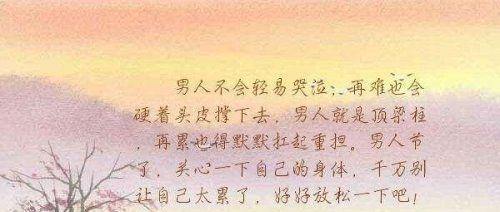 男人不会轻易哭泣，再难也会
硬着头皮撑下去，男人就是顶梁柱
，再累也得默默扛起重担。男人节
了，关心一下自己的身体，千万别
让自己太累了，好好放松一下吧！